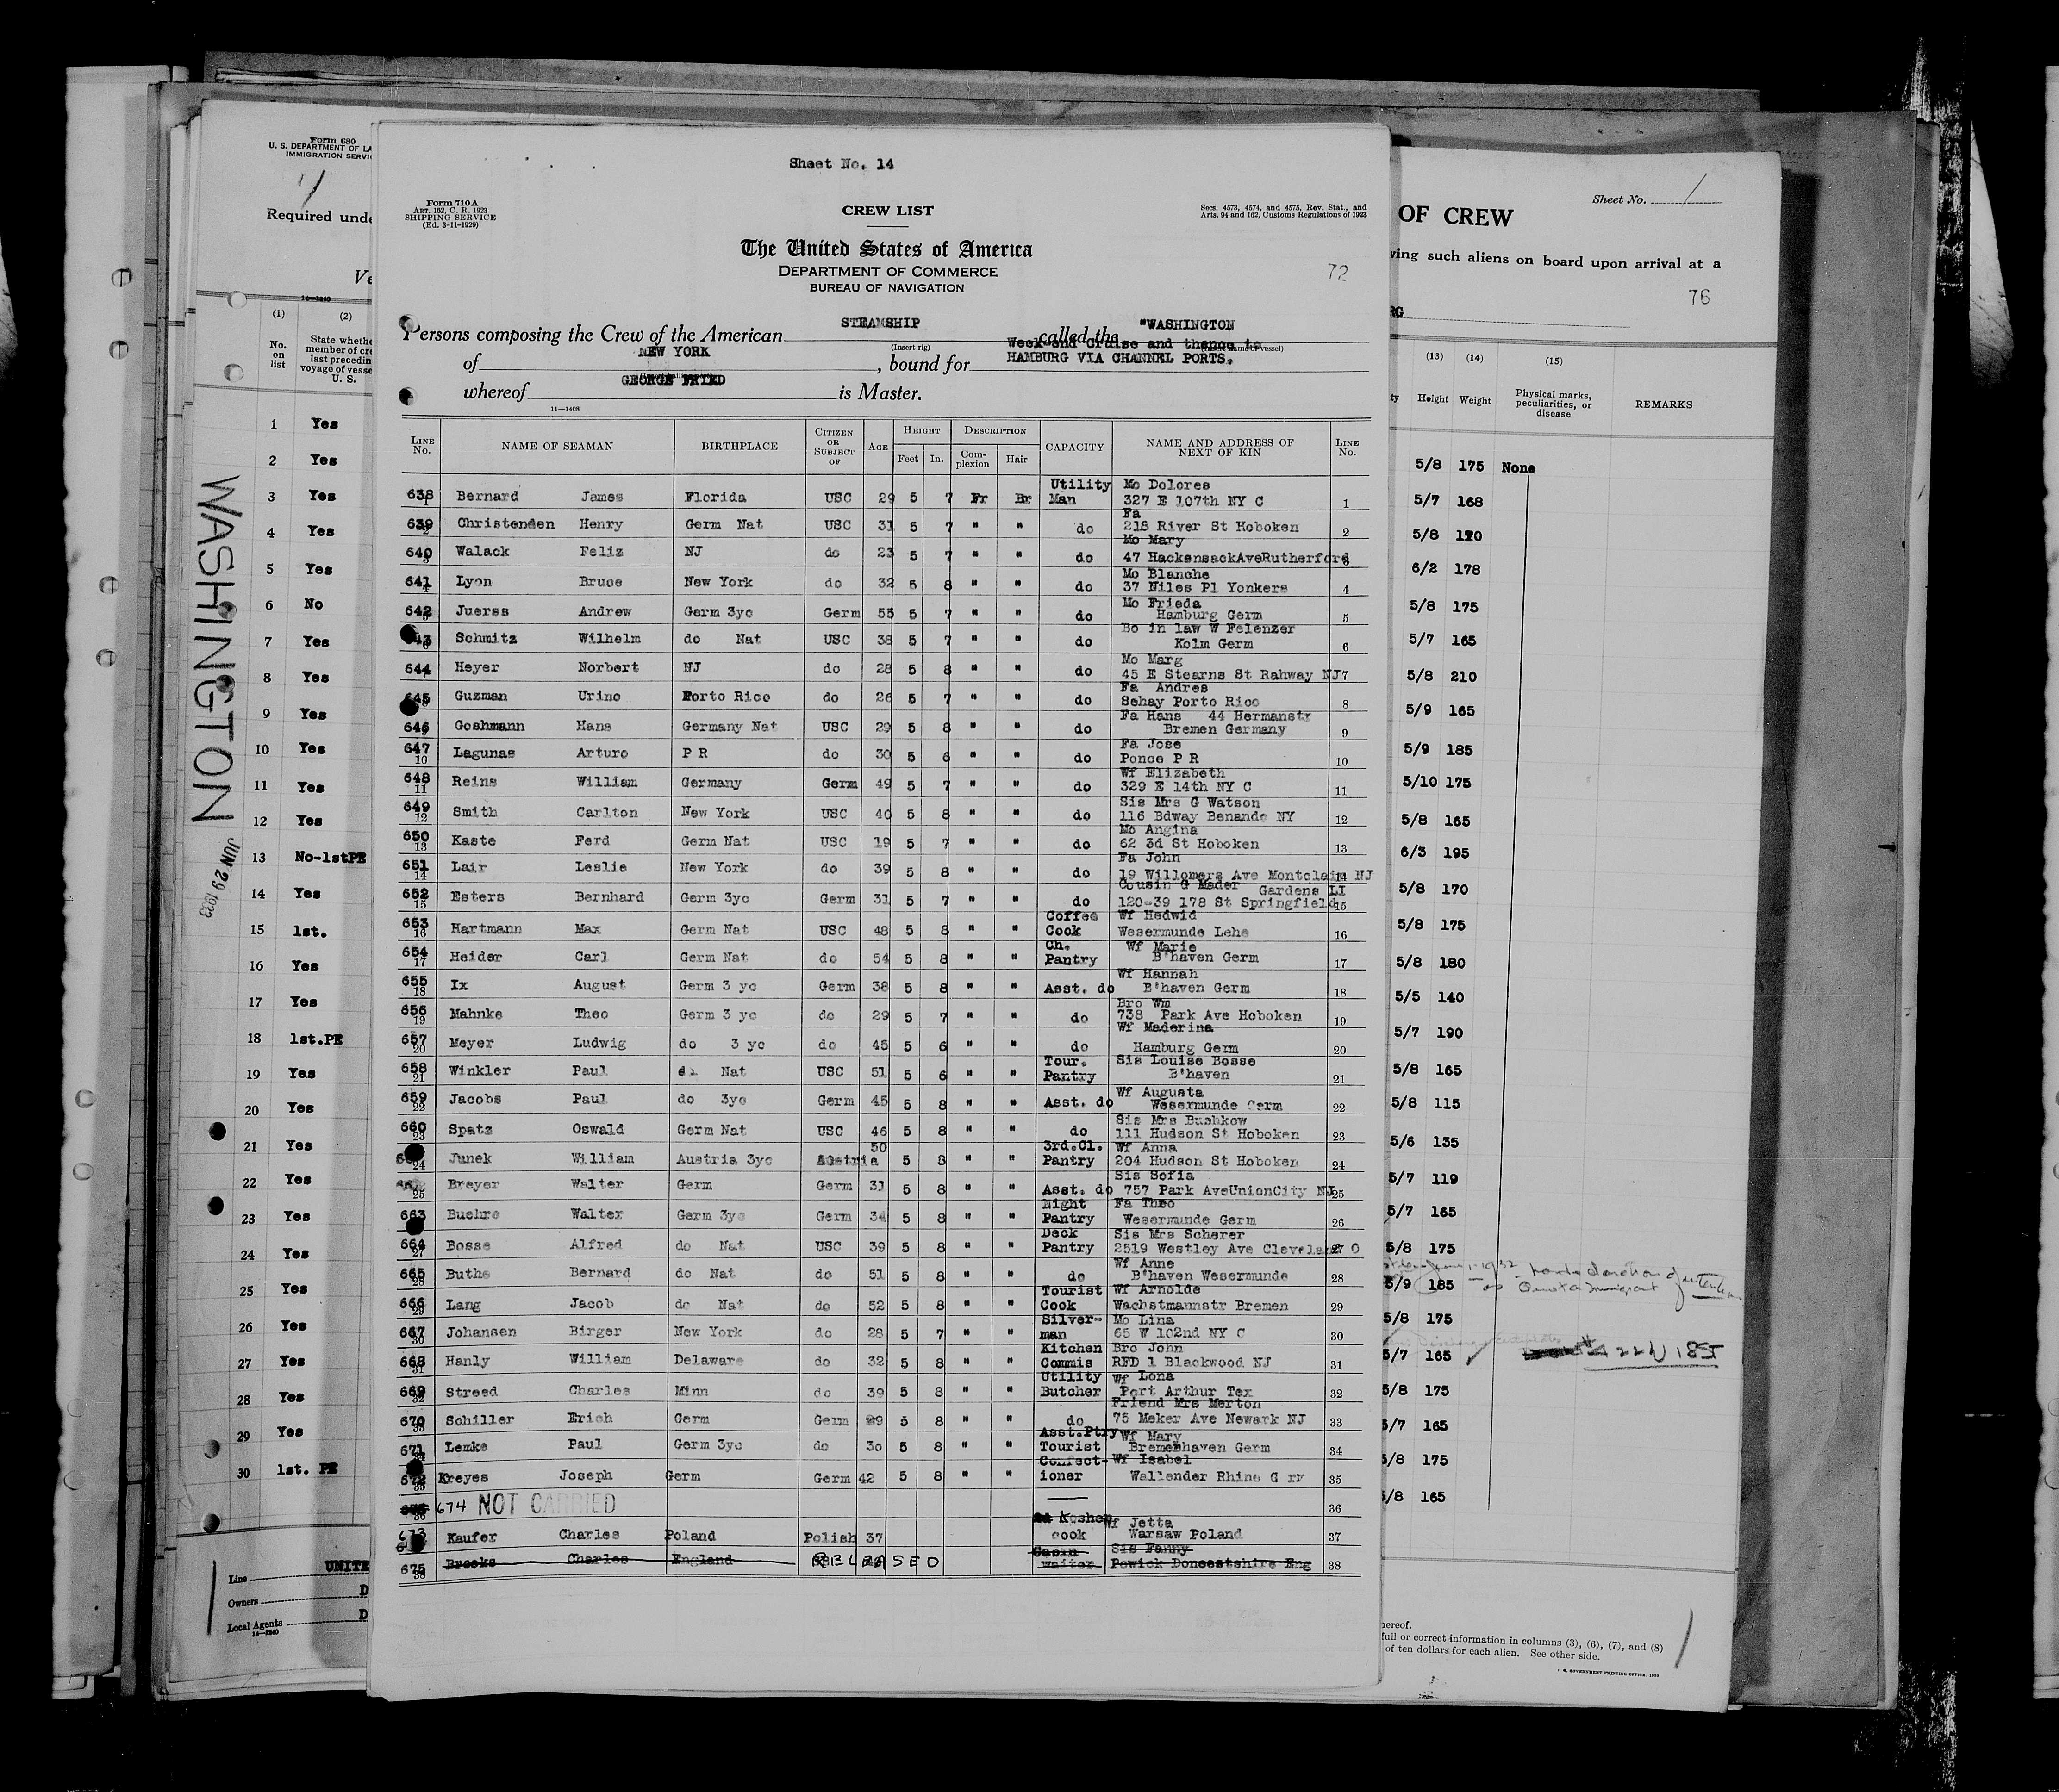 Form 680
U. S. DEPARTMENT OF LA
IMMIGRATION SERVIC
Required unde
Ve
14—1240
(1) (2)
No. on list
State whethe
member of cre
last precedin
voyage of vesse
U. S.
1 Yes
2 Yes
3 Yes
4 Yes
5 Yes
6 No
7 Yes
8 Yes
9 Yes
10 Yes
11 Yes
12 Yes
13 No-1stPE
14 Yes
15 1st.
16 Yes
17 Yes
18 1st.PE
19 Yes
20 Yes
21 Yes
22 Yes
23 Yes
24 Yes
25 Yes
26 Yes
27 Yes
28 Yes
29 Yes
30 1st. PE
Line UNITE
Owners D
Local Agents D
14—1240
WASHINGTON
JUN 29 1933
Sheet No. 14
Form 710 A
ART. 162, C. R. 1923
SHIPPING SERVICE
(Ed. 3-11-1929)
CREW LIST
Secs. 4573, 4574, and 4575, Rev. Stat., and
Arts. 94 and 162, Customs Regulations of 1923
The United States of America
DEPARTMENT OF COMMERCE
BUREAU OF NAVIGATION
72
Persons composing the Crew of the American STEAMSHIP called the "WASHINGTON
(Insert rig)
of NEW YORK, bound for Week-end Cruise and thence to
HAMBURG VIA CHANNEL PORTS.
whereof GEORGE FRIED is Master.
11—1408
LINE No. NAME OF SEAMAN BIRTHPLACE CITIZEN OR SUBJECT OF AGE HEIGHT Feet In. DESCRIPTION Complexion Hair CAPACITY NAME AND ADDRESS OF NEXT OF KIN LINE No.
638 1 Bernard James Florida USC 29 5 7 Fr Br Utility Man Mo Dolores 327 E 107th NY C 1
639 2 Christenden Henry Germ Nat USC 31 5 7 " " do Fa 218 River St Hoboken 2
640 3 Walack Feliz NJ do 23 5 7 " " do Mo Mary 47 HackensackAveRutherford 3
641 4 Lyon Bruce New York do 32 5 8 " " do Mo Blanche 37 Niles Pl Yonkers 4
642 5 Juerss Andrew Germ 3yc Germ 55 5 7 " " do Mo Frieda Hamburg Germ 5
43 6 Schmitz Wilhelm do Nat USC 38 5 7 " " do Bo in law W Felenzer Kolm Germ 6
644 7 Heyer Norbert NJ do 28 5 8 " " do Mo Marg 45 E Stearns St Rahway NJ 7
645 8 Guzman Urino Porto Rico do 26 5 7 " " do Fa Andres Sehay Porto Rico 8
646 9 Goshmann Hans Germany Nat USC 29 5 8 " " do Fa Hans 44 Hermanstr Bremen Germany 9
647 10 Lagunas Arturo P R do 30 5 6 " " do Fa Jose Ponce P R 10
648 11 Reins William Germany Germ 49 5 7 " " do Wf Elizabeth 329 E 14th NY C 11
649 12 Smith Carlton New York USC 40 5 8 " " do Sis Mrs G Watson 116 Bdway Benando NY 12
650 13 Kaste Ferd Germ Nat USC 19 5 7 " " do Mo Angina 62 3d St Hoboken 13
651 14 Lair Leslie New York do 39 5 8 " " do Fa John 19 Willomers Ave Montclair NJ 14
652 15 Esters Bernhard Germ 3yc Germ 31 5 7 " " do Cousin G Mader Gardens LI 120-39 178 St Springfield 15
653 16 Hartmann Max Germ Nat USC 48 5 8 " " Coffee Cook Wf Hedwid Wesermunde Lehe 16
654 17 Heider Carl Germ Nat do 54 5 8 " " Ch. Pantry Wf Marie B'haven Germ 17
655 18 Ix August Germ 3 yc Germ 38 5 8 " " Asst. do Wf Hannah B'haven Germ 18
656 19 Mahnke Theo Germ 3 yc do 29 5 7 " " do Bro Wm 738 Park Ave Hoboken 19
657 20 Meyer Ludwig do 3 yc do 45 5 6 " " do Wf Maderina Hamburg Germ 20
658 21 Winkler Paul do Nat USC 51 5 6 " " Tour. Pantry Sis Louise Bosse B'haven 21
659 22 Jacobs Paul do 3yc Germ 45 5 8 " " Asst. do Wf Augusta Wesermunde Germ 22
660 23 Spatz Oswald Germ Nat USC 46 5 8 " " do Sis Mrs Bushkow 111 Hudson St Hoboken 23
24 Junek William Austria 3yc Austria 50 5 8 " " 3rd.Cl. Pantry Wf Anna 204 Hudson St Hoboken 24
25 Breyer Walter Germ Germ 31 5 8 " " Asst. do Sis Sofia 757 Park AveUnionCity NJ 25
663 Buehre Walter Germ 3yc Germ 34 5 8 " " Night Pantry Fa Theo Wesermunde Germ 26
664 27 Bosse Alfred do Nat USC 39 5 8 " " Deck Pantry Sis Mrs Scherer 2519 Westley Ave Cleveland O 27
665 28 Buthe Bernard do Nat do 51 5 8 " " do Wf Anne B'haven Wesermunde 28
666 29 Lang Jacob do Nat do 52 5 8 " " Tourist Cook Wf Arnolde Wachstmannstr Bremen 29
667 30 Johansen Birger New York do 28 5 7 " " Silverman Mo Lina 65 W 102nd NY C 30
668 31 Hanly William Delaware do 32 5 8 " " Kitchen Commis Bro John RFD 1 Blackwood NJ 31
669 32 Streed Charles Minn do 39 5 8 " " Utility Butcher Wf Lona Port Arthur Tex 32
670 33 Schiller Erich Germ Germ 29 5 8 " " do Friend Mrs Merton 75 Meker Ave Newark NJ 33
671 34 Lemke Paul Germ 3yc do 30 5 8 " " Asst.Ptry Tourist Wf Mary Bremenhaven Germ 34
672 35 Kreyes Joseph Germ Germ 42 5 8 " " Confectioner Wf Isabel Wallender Rhine G 35
36 674 NOT CARRIED 36
673 Kaufer Charles Poland Polish 37 Kosher cook Wf Jetta Warsaw Poland 37
675 38 Brooks Charles England RELEASED waiter Sis Fanny Powick Doncestshire Eng 38
Sheet No. 1
OF CREW
ving such aliens on board upon arrival at a
76
RG
(13) (14) (15)
ty Height Weight Physical marks, peculiarities, or disease REMARKS
5/8 175 None
5/7 168
5/8 120
6/2 178
5/8 175
5/7 165
5/8 210
5/9 165
5/9 185
5/10 175
5/8 165
6/3 195
5/8 170
5/8 175
5/8 180
5/5 140
5/7 190
5/8 165
5/8 115
5/6 135
5/7 119
5/7 165
5/8 175
5/9 185
5/8 175
5/7 165
5/8 175
5/7 165
5/8 175
5/8 165
hereof.
full or correct information in columns (3), (6), (7), and (8)
of ten dollars for each alien. See other side.
GOVERNMENT PRINTING OFFICE